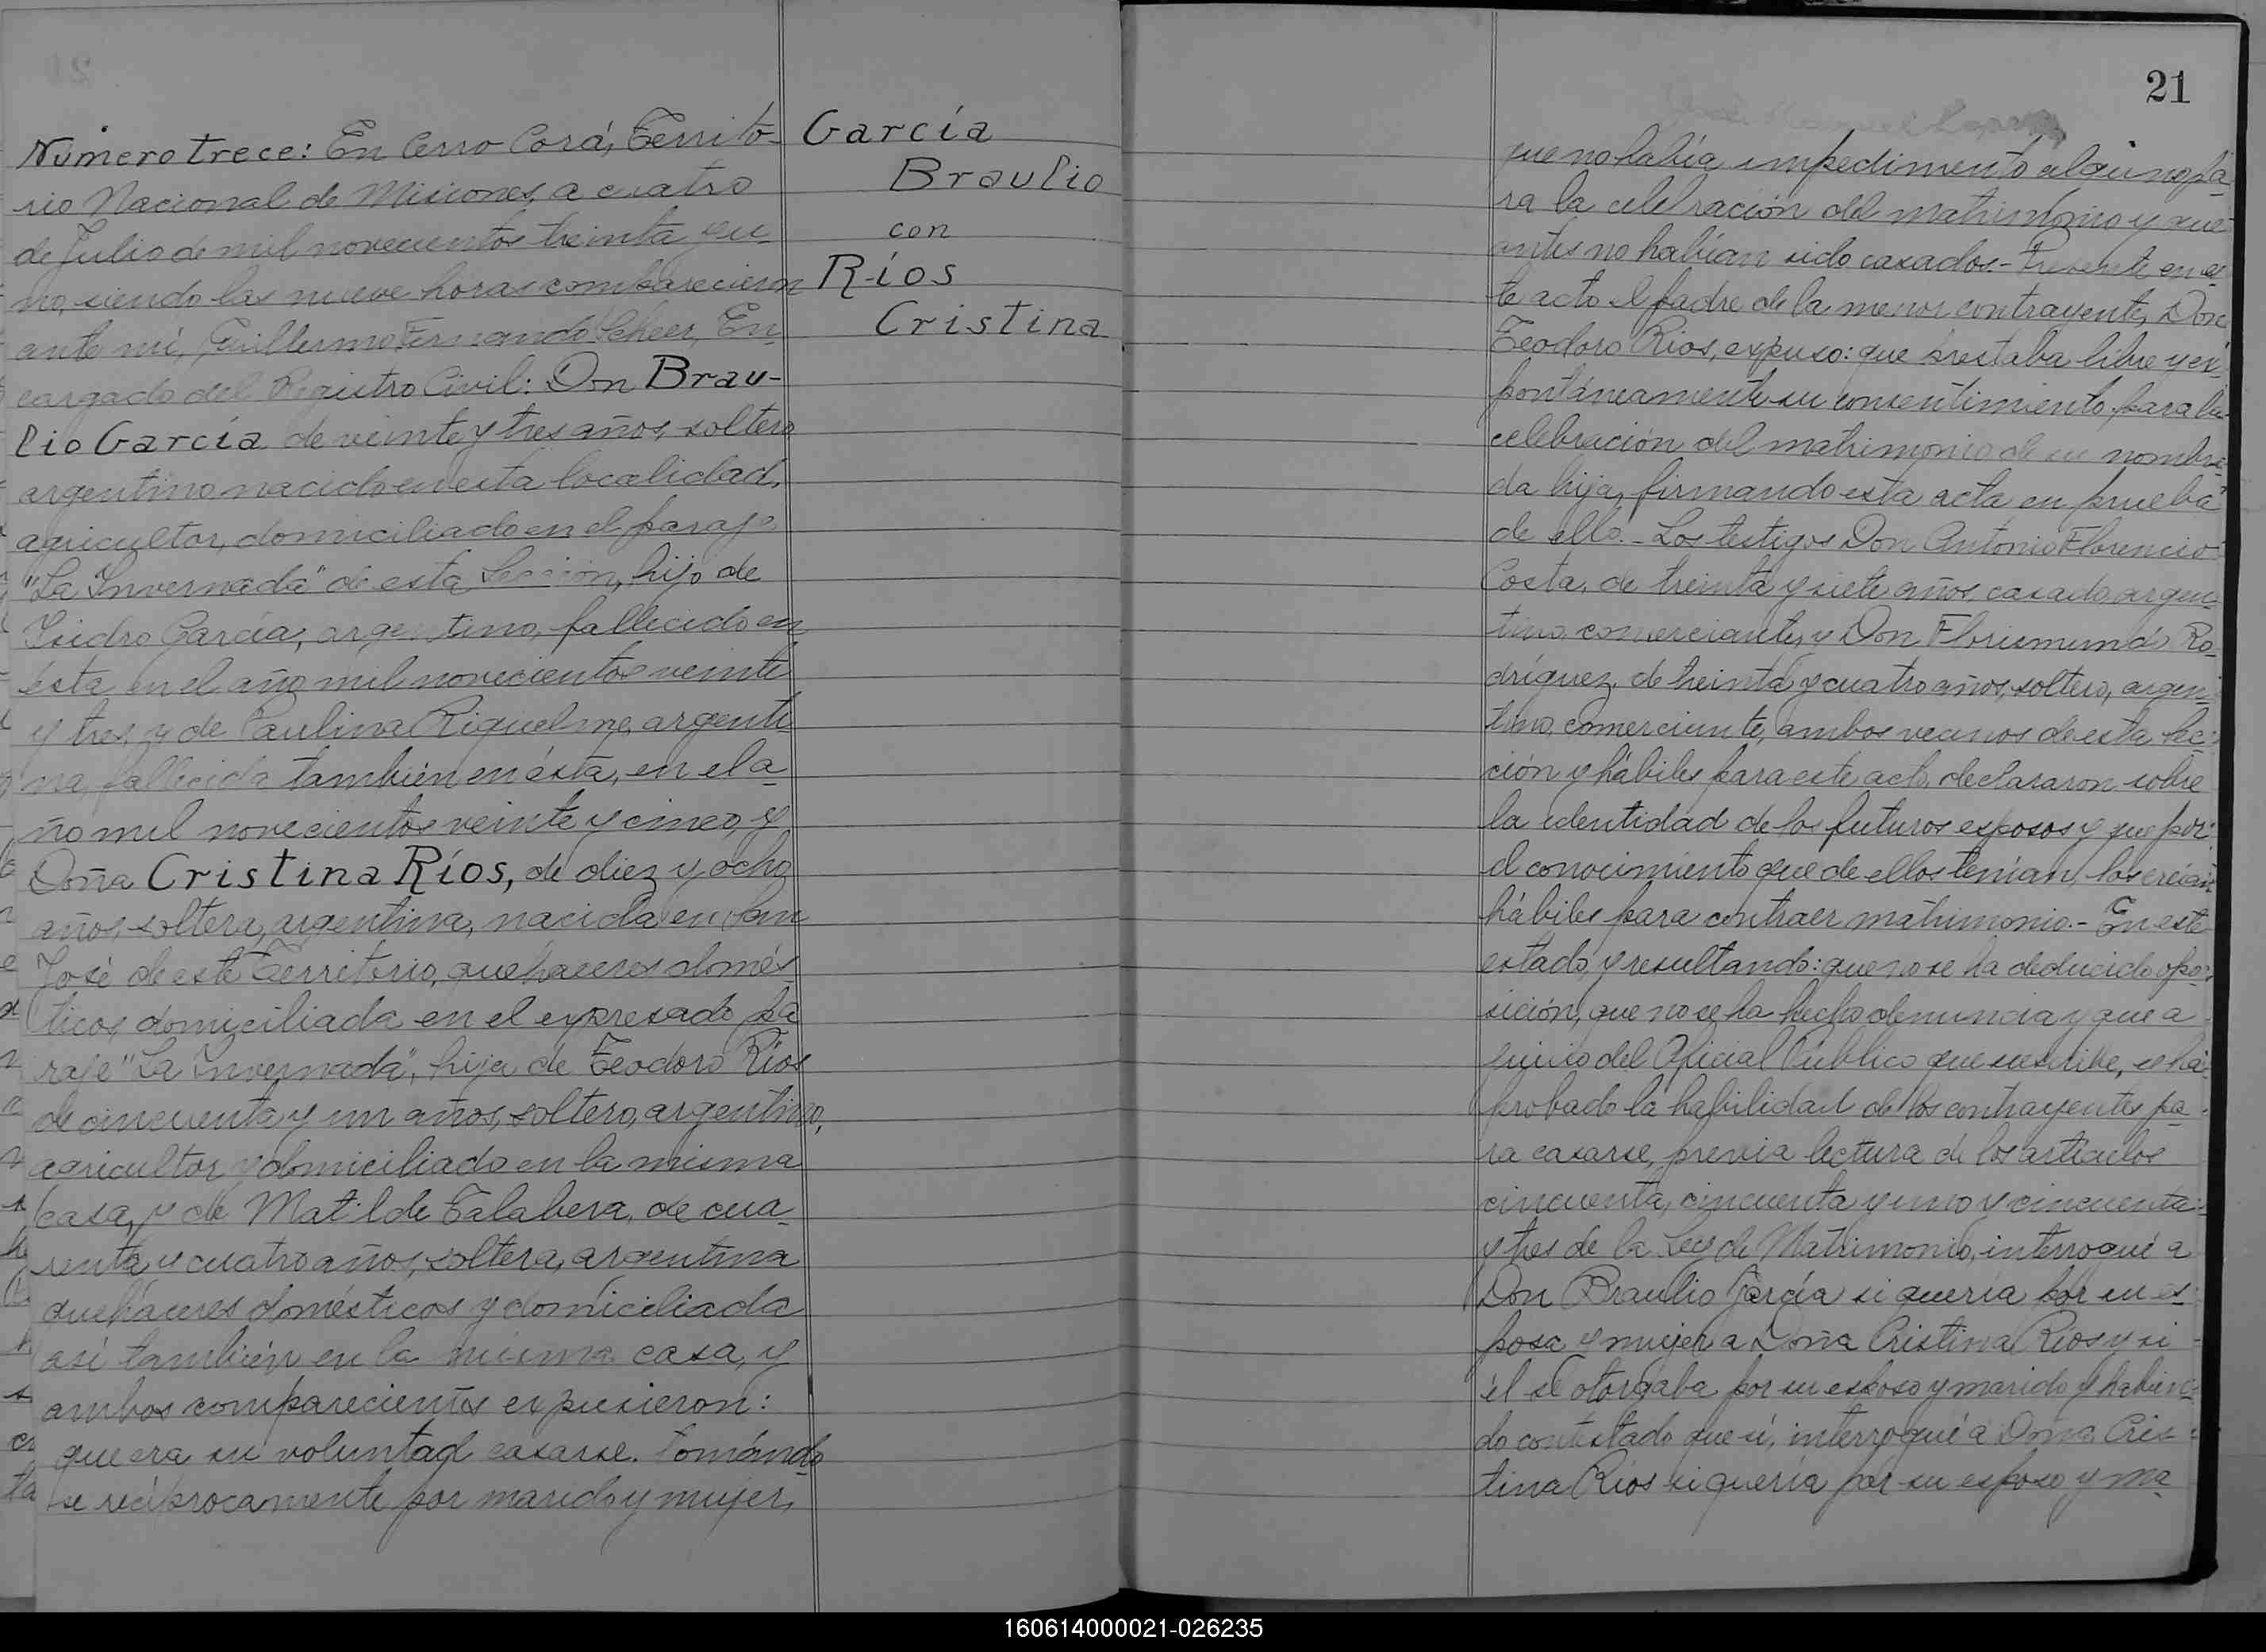 Número trece: En Cerro Corá, Territo-
rio Nacional de Misiones, a cuatro
de Julio de mil novecientos treinta y u-
no, siendo las nueve horas comparecieron
ante mí, Guillermo Fernando Scheer, En-
cargado del Registro Civil: Don Brau-
lio García de veinte y tres años, soltero
argentino nacido en esta localidad,
agricultor, domiciliado en el paraje
"La Invernada" de esta Sección, hijo de
Isidro García, argentino, fallecido en
ésta en el año mil novecientos veinte
y tres, y de Paulina Riquelme, argenti-
na, fallecida también en ésta, en el a-
ño mil novecientos veinte y cinco, y
Doña Cristina Ríos, de diez y ocho
años, soltera, argentina, nacida en San
José de este Territorio, quehaceres domés-
ticos, domiciliada en el expresado pa-
raje "La Invernada", hija de Teodoro Ríos
de cincuenta y un años, soltero, argentino,
agricultor y domiciliado en la misma
casa, y de Matilde Talabera, de cua-
renta y cuatro años, soltera, argentina
quehaceres domésticos y domiciliada
así también en la misma casa, y
ambos comparecientes expusieron:
que era su voluntad casarse. Tomándo-
se recíprocamente por marido y mujer,
García
Braulio
con
Ríos
Cristina
21
que no había impedimento alguno pa-
ra la celebración del matrimonio y que
antes no habían sido casados.- Presente en es-
te acto el padre de la menor contrayente, Don
Teodoro Ríos, expuso: que prestaba libre y es-
pontáneamente su consentimiento para la
celebración del matrimonio de su nombra-
da hija, firmando esta acta en prueba
de ello.- Los testigos Don Antonio Florencio
Costa, de treinta y siete años, casado, argen-
tino, comerciante, y Don Florismundo Ro-
dríguez, de treinta y cuatro años, soltero, argen-
tino, comerciante, ambos vecinos de esta Sec-
ción y hábiles para este acto, declararon sobre
la identidad de los futuros esposos y que por
el conocimiento que de ellos tenían, los creían
hábiles para contraer matrimonio.- En este
estado, y resultando: que no se ha deducido opo-
sición, que no se ha hecho denuncia y que a
juicio del Oficial Público que suscribe, se ha
probado la habilidad de los contrayentes pa-
ra casarse, previa lectura de los artículos
cincuenta, cincuenta y uno y cincuenta
y tres de la Ley de Matrimonio, interrogué a
Don Braulio García si quería por su es-
posa y mujer a Doña Cristina Ríos y si
él se otorgaba por su esposo y marido y habien-
do contestado que sí, interrogué a Doña Cris-
tina Ríos si quería por su esposo y ma-
160614000021-026235